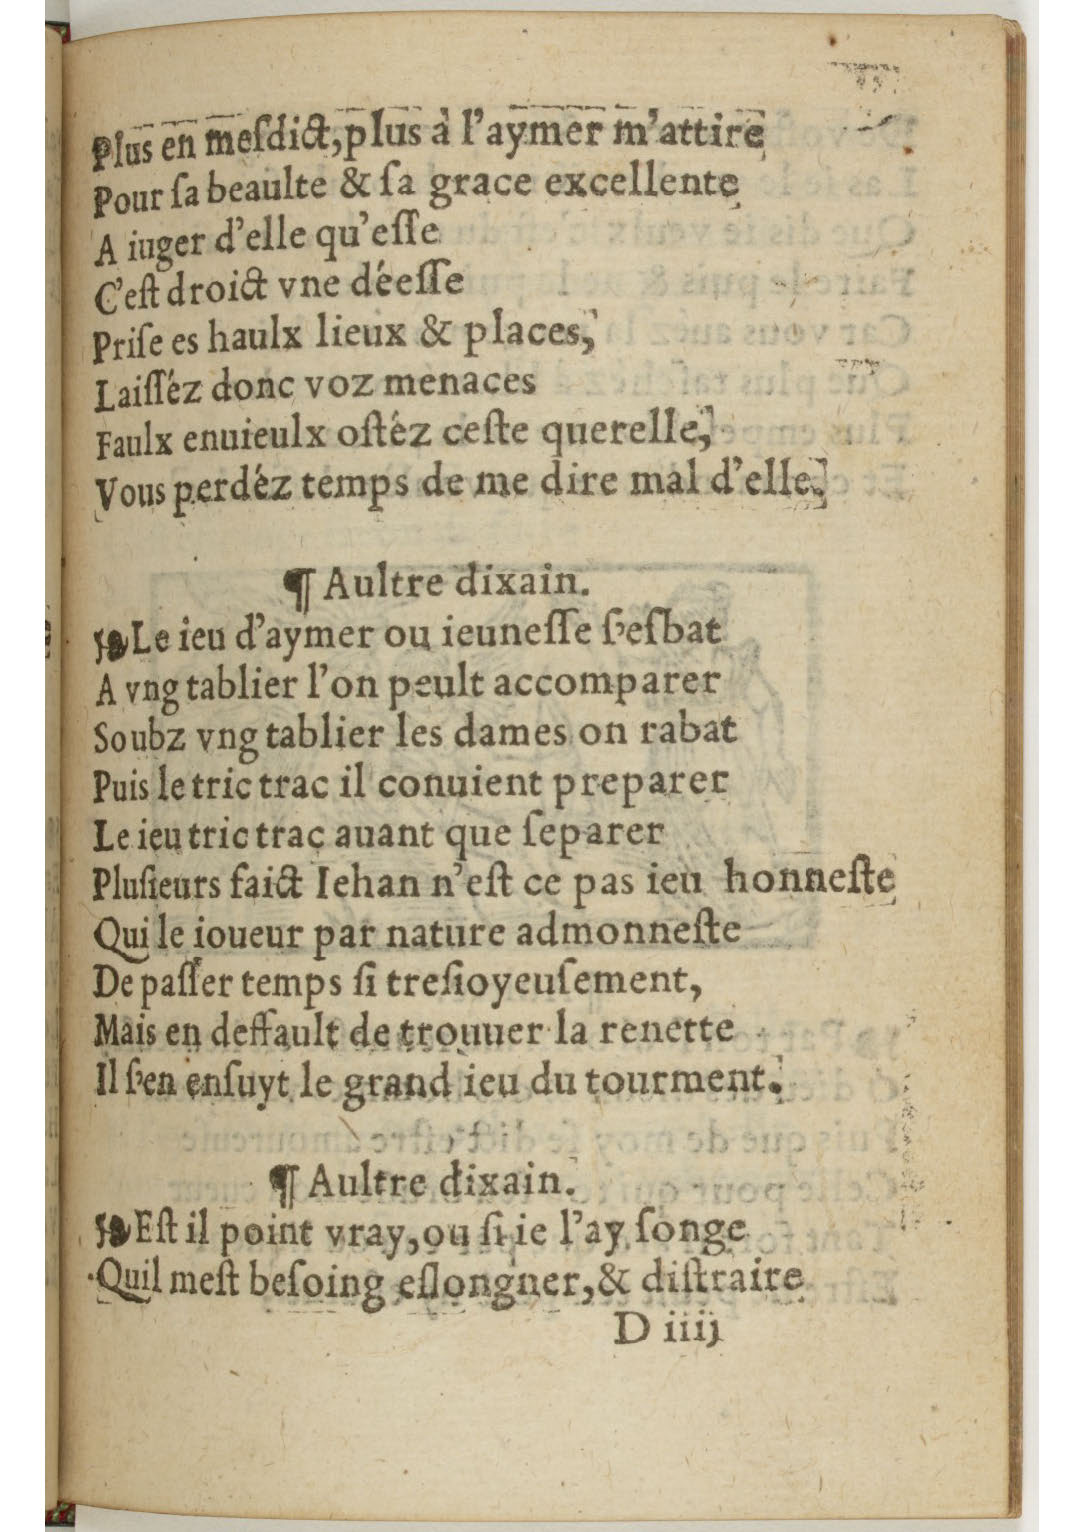 Plus en meſdict, plus à l'aymer m'attire
Pour ſa beaulte & ſa grace excellente
A iuger d'elle qu'eſſe
C'eſt droict vne déeſſe
Priſe es haulx lieux & places,
Laiſſéz donc voz menaces
Faulx enuieulx oſtéz ceſte querelle,
Vous perdéz temps de me dire mal d'elle.
¶ Aultre dixain.
❧ Le ieu d'aymer ou ieuneſſe ſ'eſbat
A vng tablier l'on peult accomparer
Soubz vng tablier les dames on rabat
Puis le tric trac il conuient preparer
Le ieu tric trac auant que ſeparer
Pluſieurs faict Iehan n'eſt ce pas ieu honneſte
Qui le ioueur par nature admonneſte
De paſſer temps ſi treſioyeuſement,
Mais en deffault de trouuer la renette
Il ſ'en enſuyt le grand ieu du tourment.
¶ Aultre dixain.
❧ Eſt il point vray, ou ſi ie l'ay ſonge
Quil meſt beſoing eſlongner, & diſtraire
D iiij